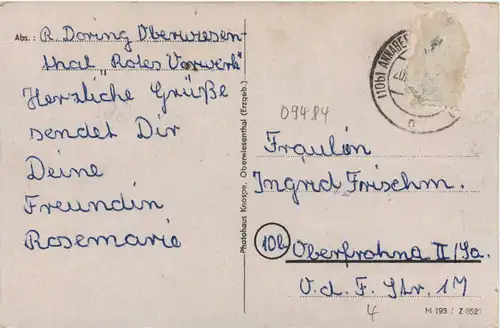 Abs.: R. Döring Oberwiesen-
thal „Rotes Vorwerk"
Herzliche Grüße
sendet Dir
Deine
Freundin
Rosemarie
Photohaus Knospe, Oberwiesenthal (Erzgeb.)
(10b) ANNABE
20.
n
09484
Fräulein
Ingrid Frischm.
10b Oberfrohna II/Sa.
V. d. F. Str. 1M
4
M 193 / Z 8521